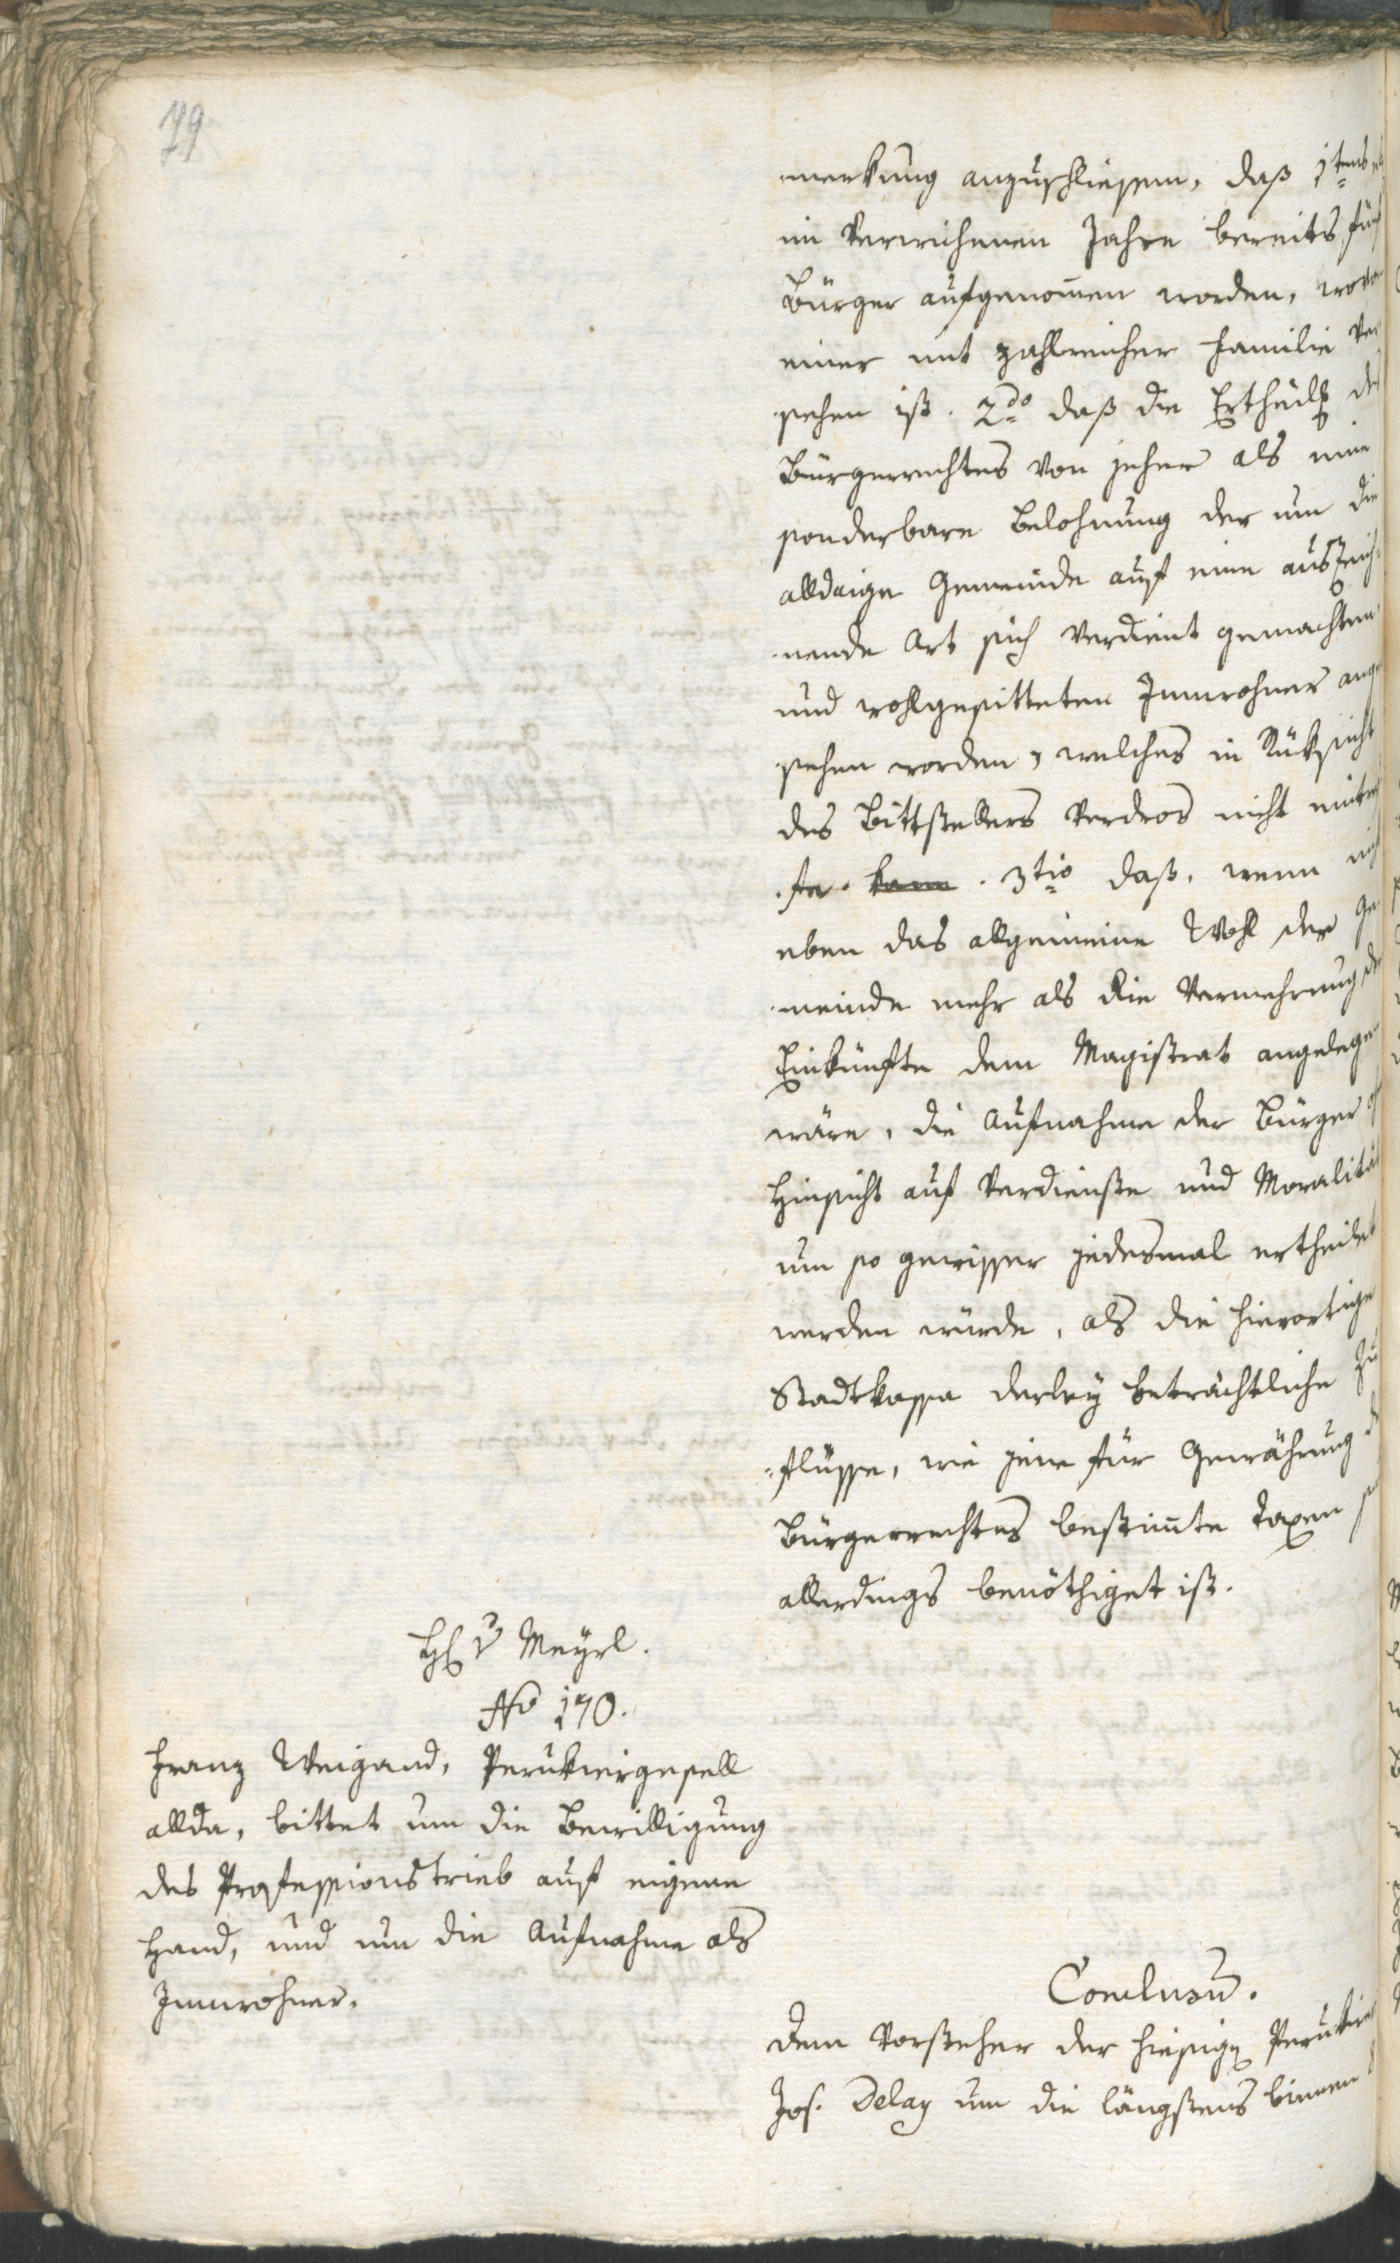 79
merkung anzuschliessen, daß 1tens
im Verwichenen Jahre bereits fünf
Bürger aufgenom̄en worden, wovon
einer mit zahlreicher Familie Ver
sehen ist. 2do daß die Ertheilg des
Bürgerrechtes von jeher als eine
sonderbare Belohnung der um die
alldaige Gemeinde auf eine auszeich-
nende Art sich Verdient gemachten
und wohlgesitteten Innwohner ange
sehen worden, welches in Rüksicht
des Bittstellers Verdros nicht eintref
fe. kann. 3tio daß, wenn nicht
eben das allgemeine Wohl der Ge
meinde mehr als die Vermehrung der
Einkünfte dem Magistrat angelegen
wäre, die Aufnahme der Bürger
Hinsicht auf Verdienste und Moralität
um so gewisser jedesmal ertheilet
werden würde, als die hierortige
Stadtkassa derley beträchtliche Zu
flüsse, wie jene für Gewährung
Bürgerrechtes bestim̄te Taxen
allerdings benöthiget ist.
H v Meyrl.
No 170.
Franz Weigand, Perukiergesell
allda, bittet um die Bewilligung
des Professionstrieb auf eigene
Hand, und um die Aufnahme als
Innwohner.
Conclusum.
Dem Vorsteher der hiesign Perukier
Jos. Delay um die längstens binnen